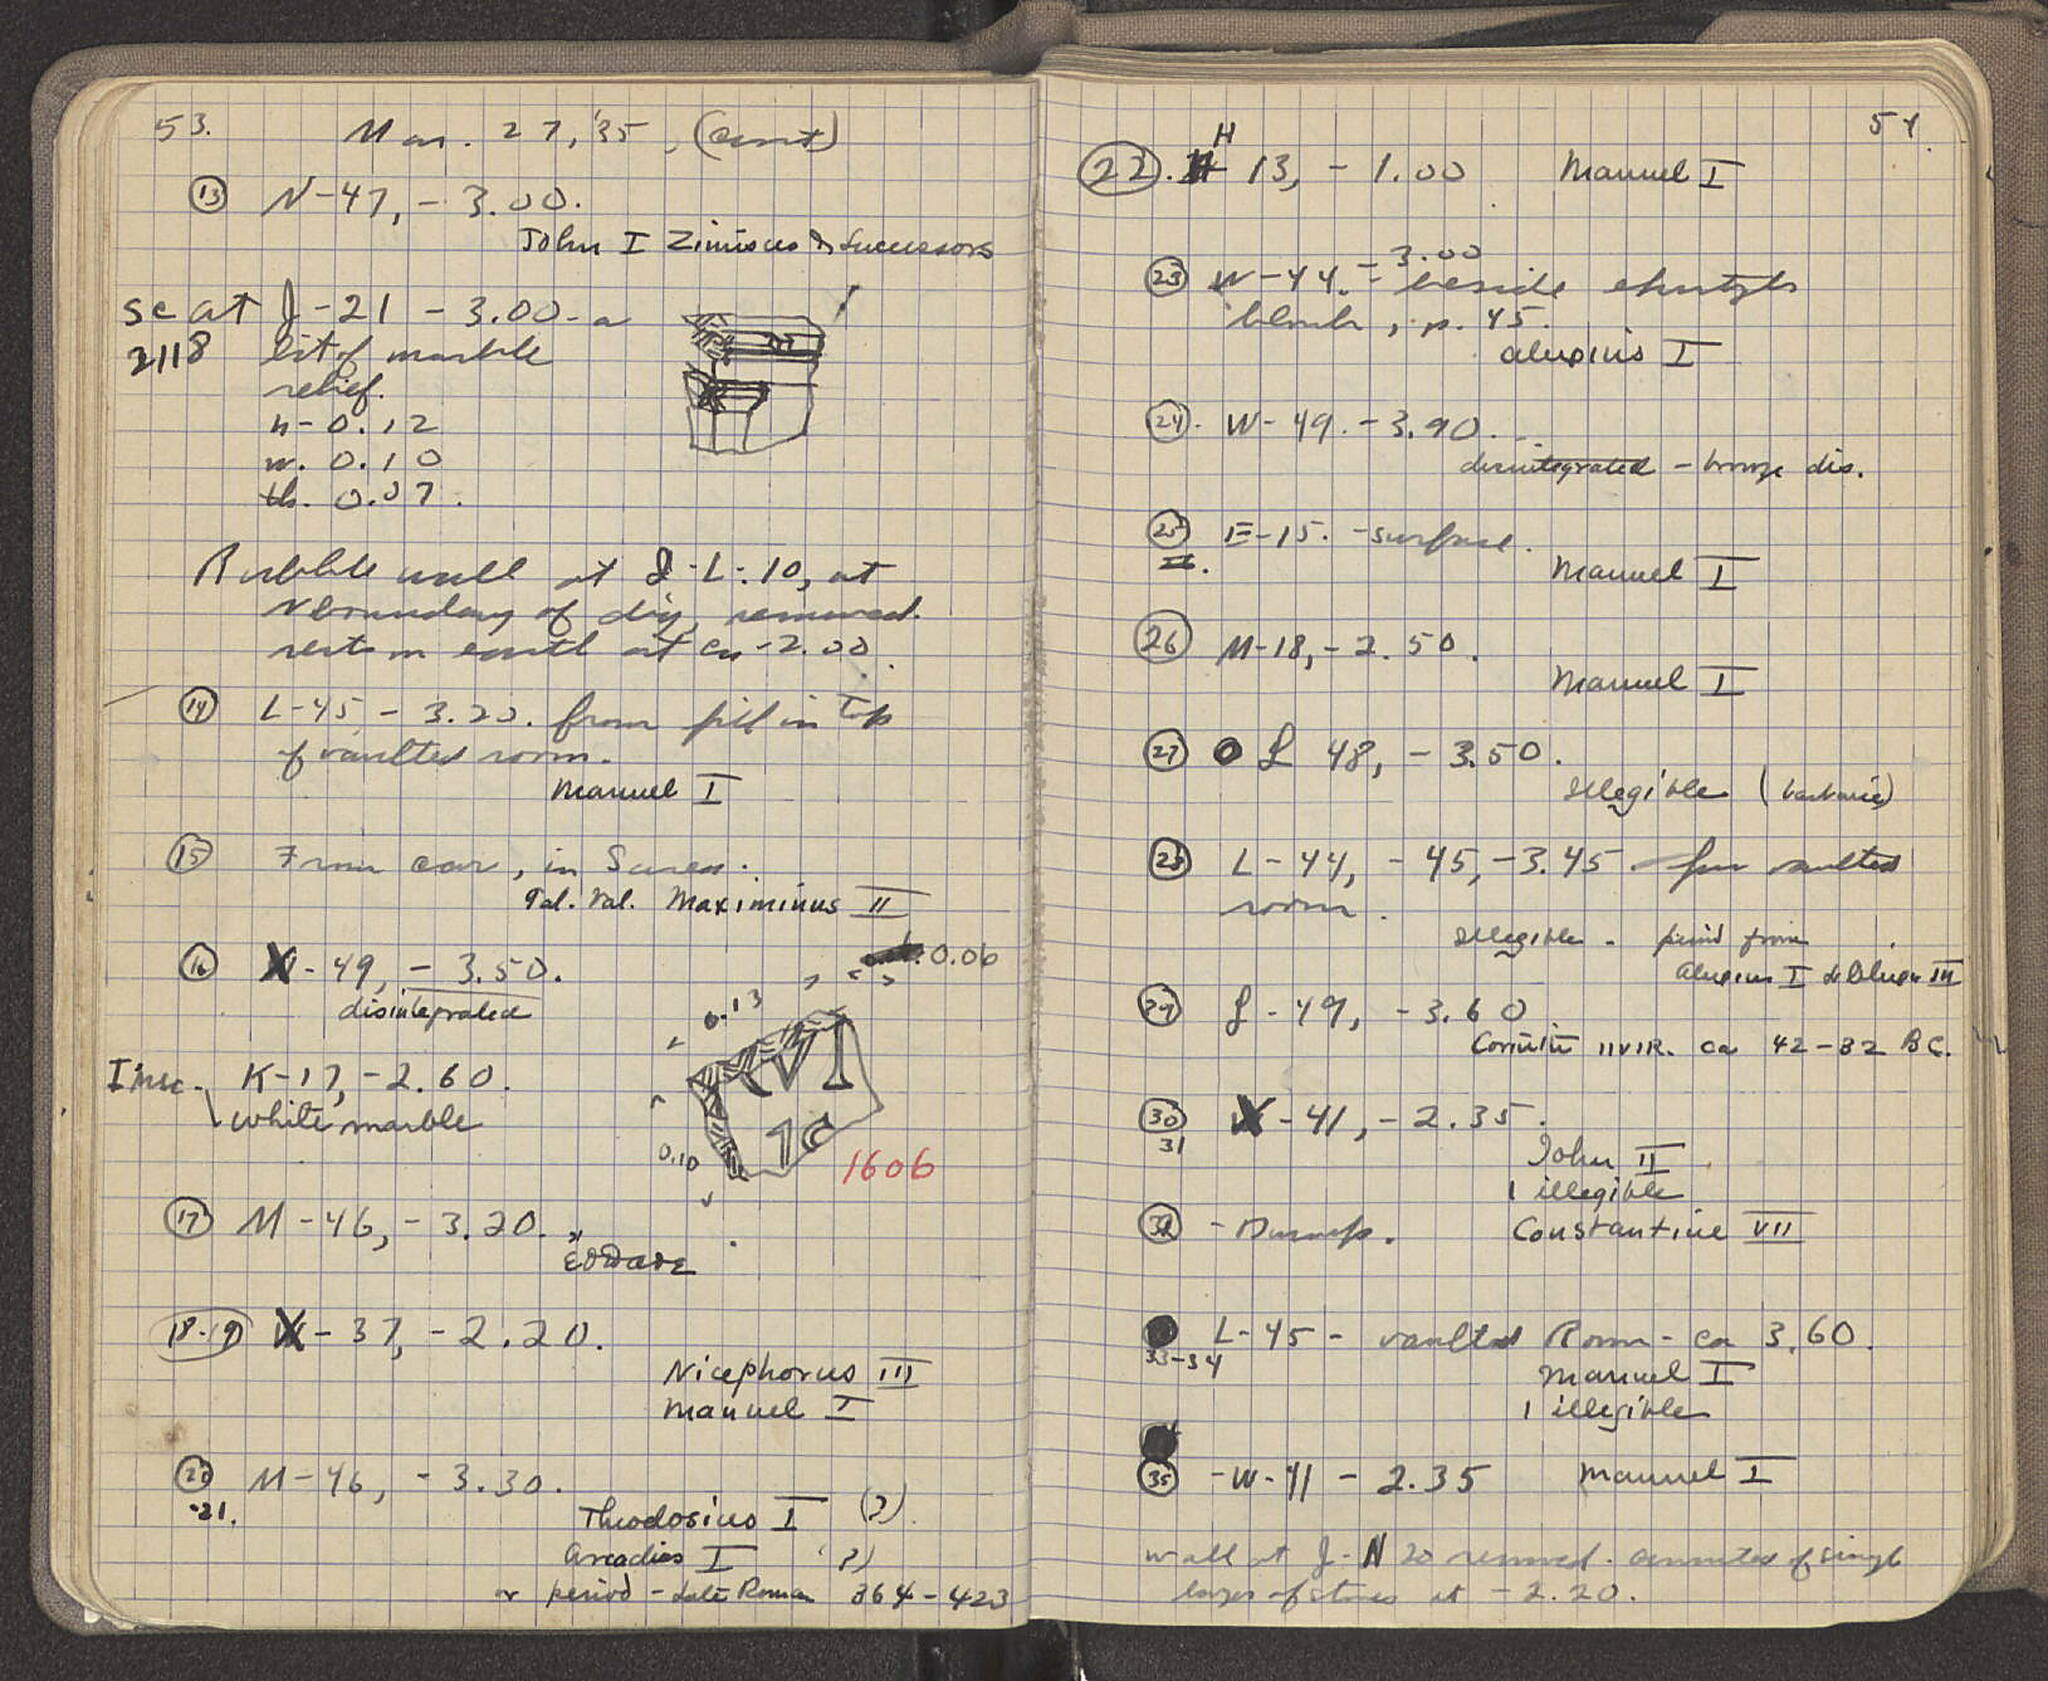 53. Mar. 27, '35, (cont)
(13) N-47, - 3.00.
John I Zimisces & Successors
sc at J-21 - 3.00 - a
2118 bit of marble
relief.
h- 0.12
w. 0.10
th. 0.07.
Rubble wall at J-L:10, at
N boundary of dig, removed.
rests on earth at ca -2.00.
(14) L-45 - 3.20. from fill in top
of vaulted room.
Manuel I
(15) From car, in
Gal. Val. Maximinus II
(16) X-49, - 3.50.
disintegrated
0.06
0.13
Insc. K-17, -2.60.
white marble
VI
0.10
1606
(17) M-46, - 3.20.
18-19 X-37, -2.20.
Nicephorus III
Manuel I
(20) M-46, - 3.30.
-21.
Theodosius I (?)
Arcadius I (?)
or period - Late Roman 364-423
54
(22). H 13, - 1.00 Manuel I
(23) W-44. - 3.00 - beside
block, p. 45.
Alexius I
(24). W-49. -3.90.
disintegrated - bronze dis.
(25) E-15. - surface.
II. Manuel I
(26) M-18, -2.50.
Manuel I
(27) L 48, - 3.50.
illegible (barbaric)
(28) L-44, -45, -3.45 - from vaulted
room.
illegible - period from
Alexius I to Alexius III
(29) L-49, -3.60
Corinth IIVIR. ca 42-32 BC.
(30) X-41, - 2.35.
31
John II
1 illegible
(32) - Dump. Constantine VII
L-45 - vaulted Room - ca 3.60.
33-34
Manuel I
1 illegible
(35) -W-41 - 2.35 Manuel I
wall at J-N 20 removed. consisted of single
layer of stones at -2.20.